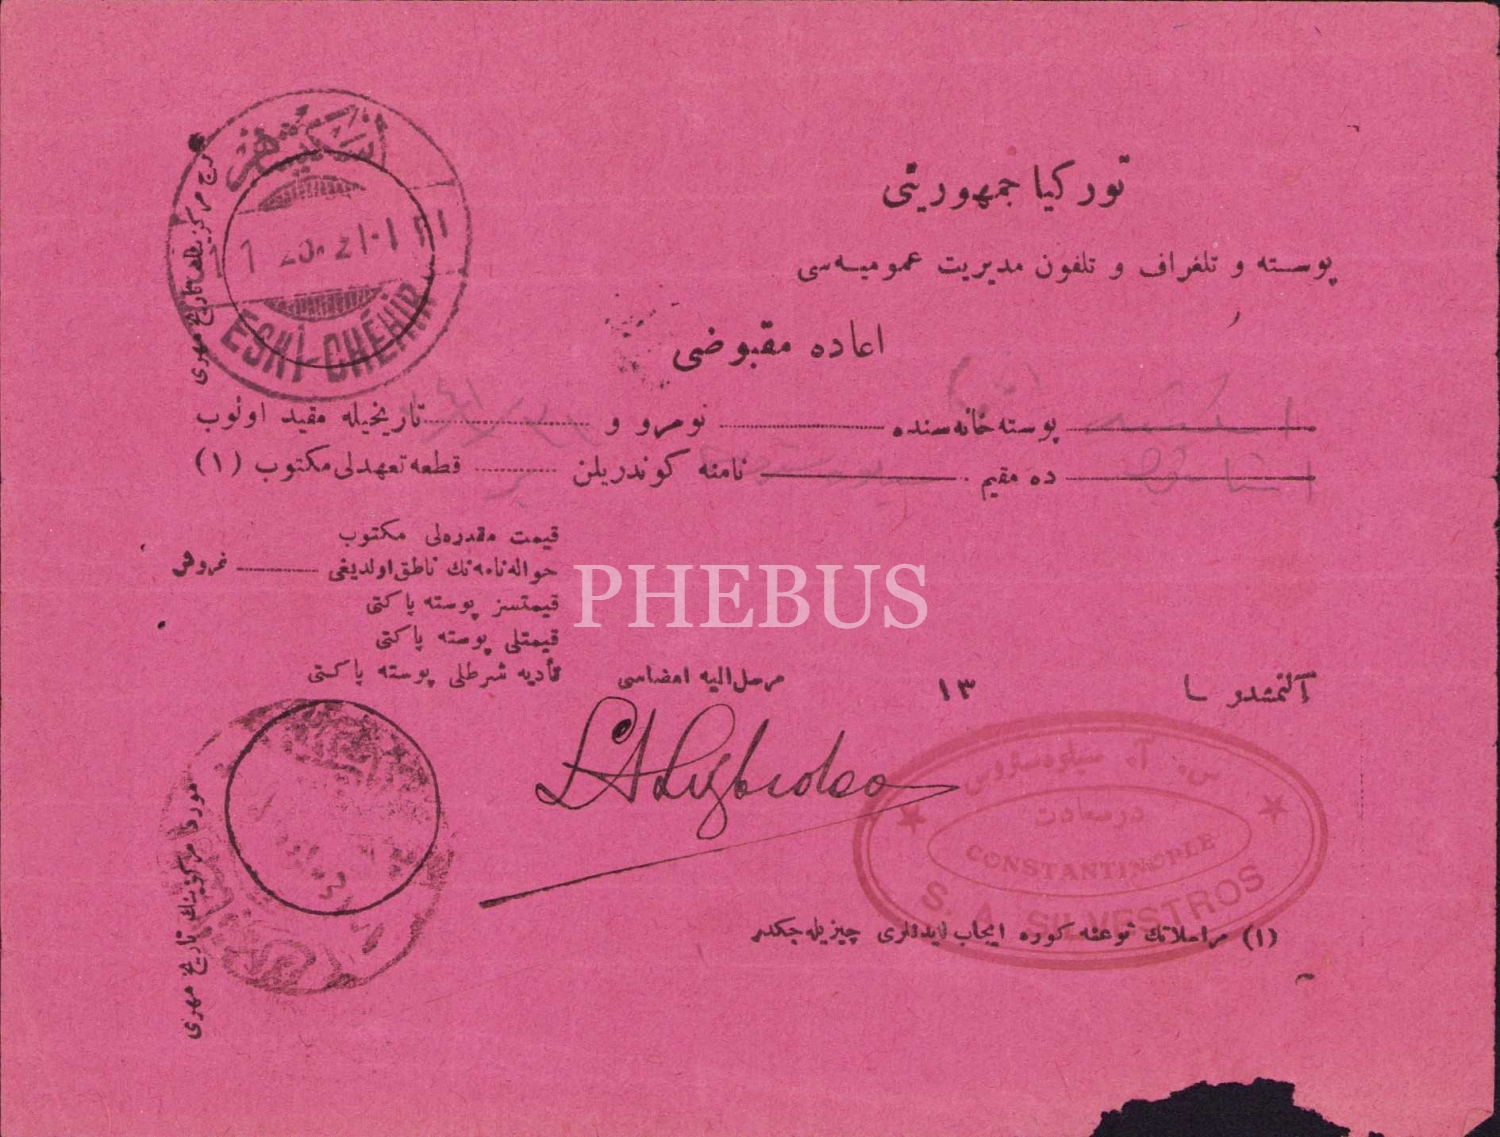 توركيا جمهوريتى
پوسته و تلغراف و تلفون مديريت عموميه‌سى
اعاده مقبوضى
پوسته‌خانه‌سنده نومرو و تاريخيله مقيد اولوب
ده مقيم نامنه كوندريلن قطعه تعهدلى مكتوب (١)
قيمت مقدره‌لى مكتوب
حواله‌نامه‌نك ناطق اولديغى غروش
قيمتسز پوسته پاكتى
قيمتلى پوسته پاكتى
تأديه شرطلى پوسته پاكتى
مرسل اليه امضاسى
آلنمشدر
١٣
(١) مراسلاتك نوعنه كوره ايجاب ايدنلرى چيزيله‌جكدر
اسكيشهر
21·1
ESKİ-CHÉHIR
تاريخ مهرى
تاريخ مهرى
درسعادت
CONSTANTINOPLE
S. A. SILVESTROS
PHEBUS